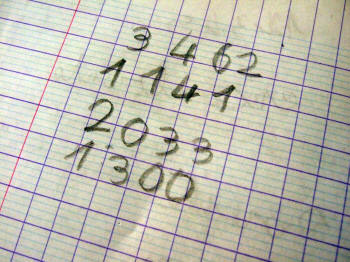 3 4 6 2
1 1 4 1
2 0 3 3
1 3 0 0